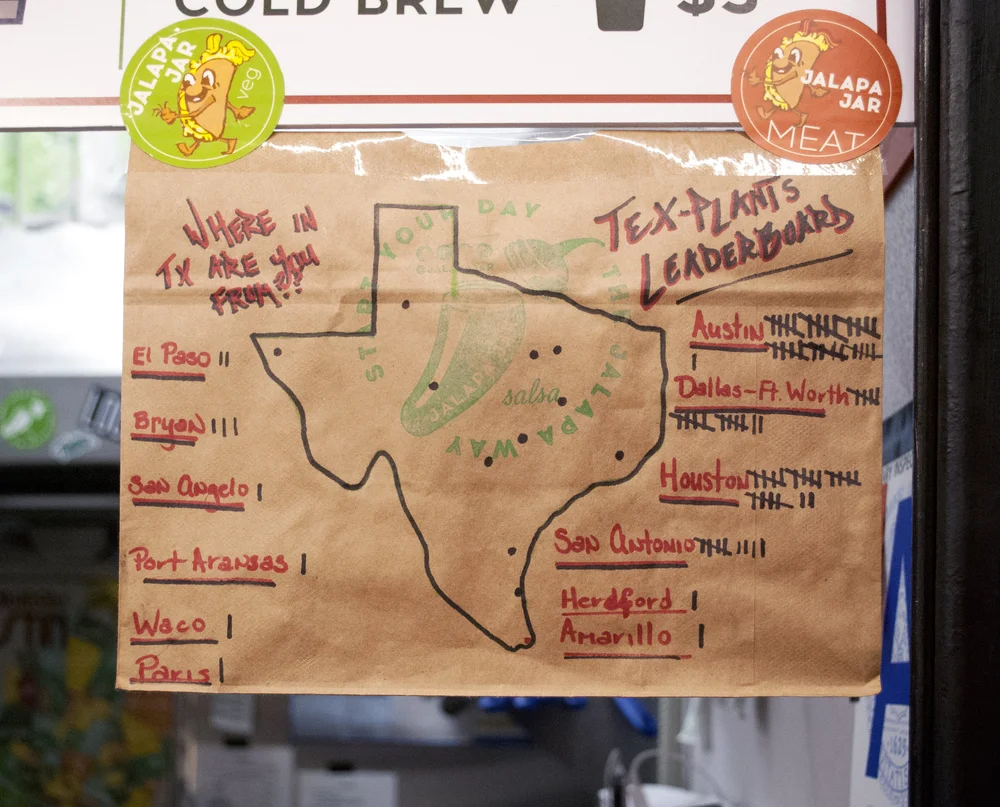 COLD BREW $3
JALAPA
JAR
veg
JALAPA
JAR
MEAT
WHERE IN
TX ARE YOU
FROM??
TEX-PLANTS
LEADERBOARD
START YOUR DAY THE JALAPA WAY
JALAPA JAR
salsa
El Paso
Bryan
San Angelo
Port Aransas
Waco
Paris
Austin
Dallas-Ft. Worth
Houston
San Antonio
Herdford
Amarillo